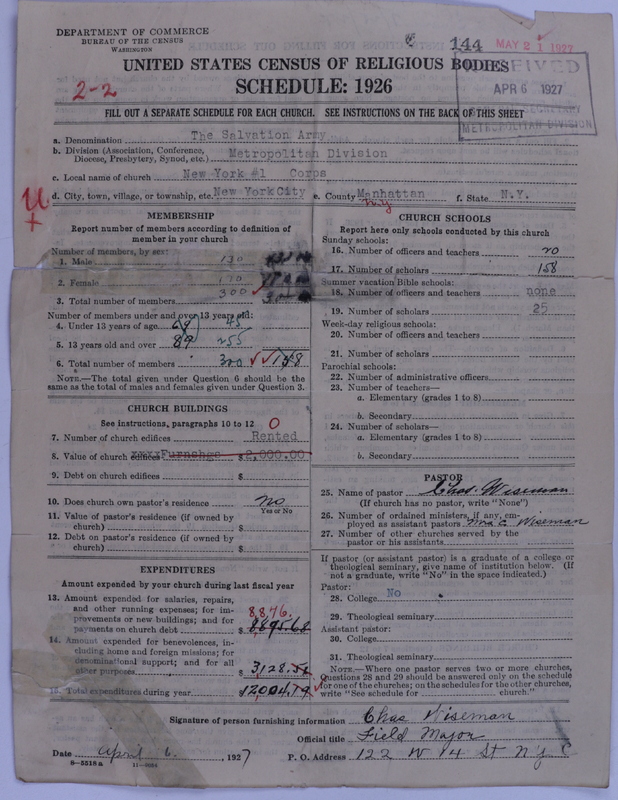 DEPARTMENT OF COMMERCE
BUREAU OF THE CENSUS
WASHINGTON
144
MAY 21 1927
UNITED STATES CENSUS OF RELIGIOUS BODIES
SCHEDULE: 1926
2-2
RECEIVED
APR 6 1927
SECRETARY
METROPOLITAN DIVISION
FILL OUT A SEPARATE SCHEDULE FOR EACH CHURCH. SEE INSTRUCTIONS ON THE BACK OF THIS SHEET
a. Denomination The Salvation Army
b. Division (Association, Conference, Diocese, Presbytery, Synod, etc.) Metropolitan Division
c. Local name of church New York #1 Corps
d. City, town, village, or township, etc. New York City e. County Manhattan f. State N.Y.
N.Y.
U
+
MEMBERSHIP
Report number of members according to definition of member in your church
Number of members, by sex:
1. Male 130
2. Female 170
3. Total number of members 300
Number of members under and over 13 years old:
4. Under 13 years of age 69 45
5. 13 years old and over 89 255
6. Total number of members 300 158
NOTE.—The total given under Question 6 should be the same as the total of males and females given under Question 3.
CHURCH BUILDINGS
See instructions, paragraphs 10 to 12
0
7. Number of church edifices Rented
8. Value of church edifices Furnshgs $ 2,000.00
9. Debt on church edifices $
10. Does church own pastor's residence No
Yes or No
11. Value of pastor's residence (if owned by church) $
12. Debt on pastor's residence (if owned by church) $
EXPENDITURES
Amount expended by your church during last fiscal year
13. Amount expended for salaries, repairs, and other running expenses; for improvements or new buildings; and for payments on church debt $ 8695.68
8,876.
14. Amount expended for benevolences, including home and foreign missions; for denominational support; and for all other purposes $ 3,128.51
15. Total expenditures during year $ 12004.19
CHURCH SCHOOLS
Report here only schools conducted by this church
Sunday schools:
16. Number of officers and teachers 20
17. Number of scholars 158
Summer vacation Bible schools:
18. Number of officers and teachers none
19. Number of scholars 25
Week-day religious schools:
20. Number of officers and teachers
21. Number of scholars
Parochial schools:
22. Number of administrative officers
23. Number of teachers—
a. Elementary (grades 1 to 8)
b. Secondary
24. Number of scholars—
a. Elementary (grades 1 to 8)
b. Secondary
PASTOR
25. Name of pastor Chas. Wiseman
(If church has no pastor, write "None")
26. Number of ordained ministers, if any, employed as assistant pastors Mrs C Wiseman
27. Number of other churches served by the pastor or his assistants
If pastor (or assistant pastor) is a graduate of a college or theological seminary, give name of institution below. (If not a graduate, write "No" in the space indicated.)
Pastor:
28. College No
29. Theological seminary
Assistant pastor:
30. College
31. Theological seminary
NOTE.—Where one pastor serves two or more churches, Questions 28 and 29 should be answered only on the schedule for one of the churches; on the schedules for the other churches, write "See schedule for church."
Signature of person furnishing information Chas Wiseman
Official title Field Major
Date April 6, 1927 P. O. Address 122 W 14 St N.Y.C
8-5518a